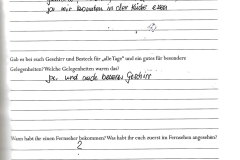 ja wir konnten in der Küche essen
Gab es bei euch Geschirr und Besteck für „alle Tage“ und ein gutes für besondere
Gelegenheiten? Welche Gelegenheiten waren das?
ja, und auch besseres Geschirr
Wann habt ihr einen Fernseher bekommen? Was habt ihr euch zuerst im Fernsehen angesehen?
?